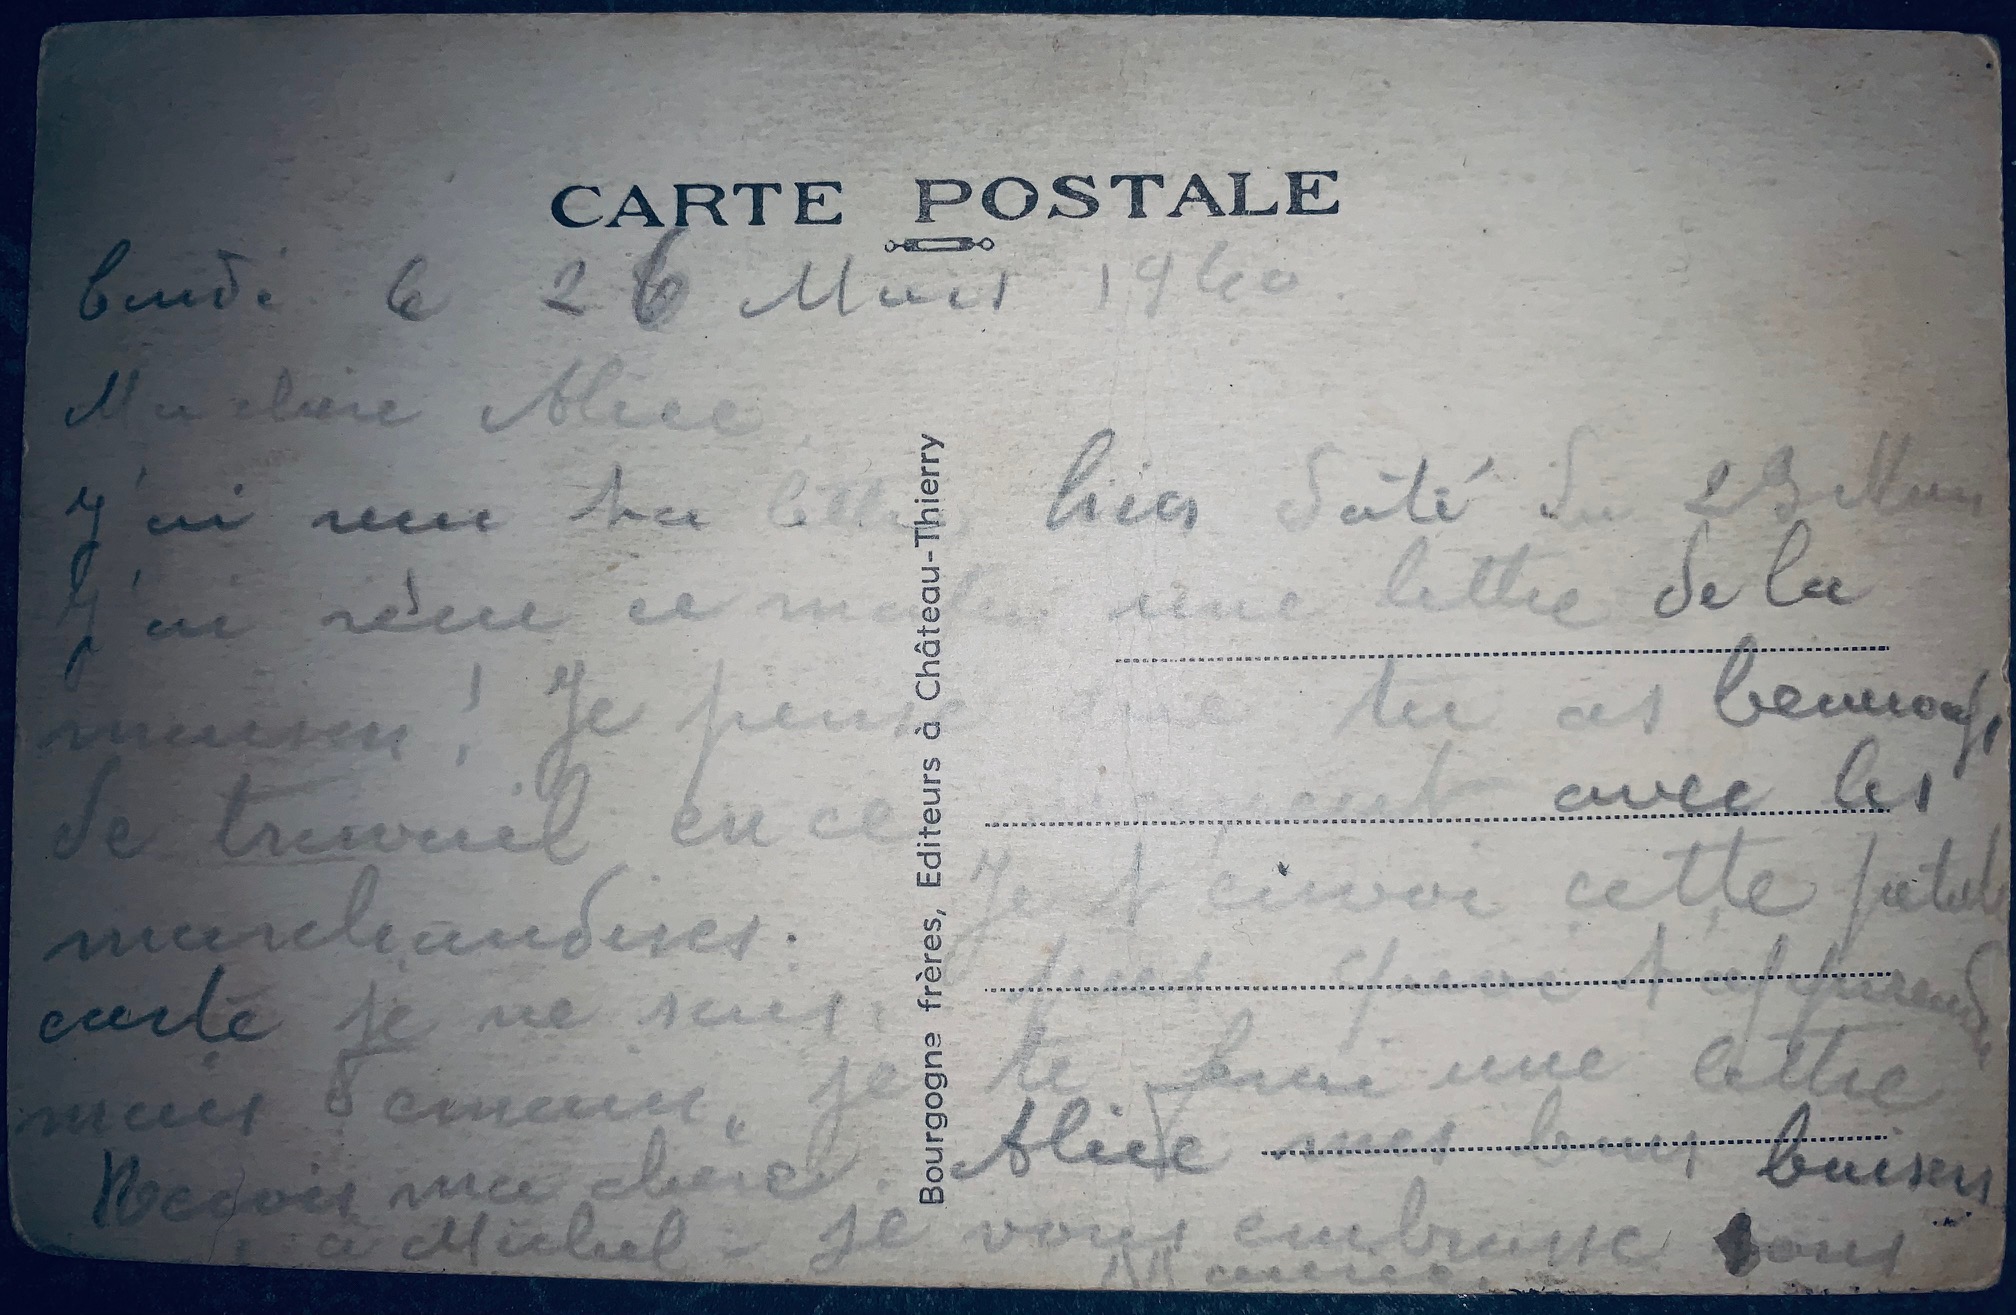 CARTE POSTALE
Lundi le 26 Mars 1940
Ma chère Alice
J'ai reçu ta lettre hier daté du 23 Mars
J'ai réçue ce matin une lettre de la
maison! Je pense que tu as beaucoup
de travail en ce moment avec les
marchandises. Je t'envoi cette petite
carte je ne sais pas quoi t'apprendre
mais demain, je te ferai une lettre
Recois ma chère Alice mes bons baisers
à Michel - je vous embrasse tous
Bourgogne frères, Editeurs à Château-Thierry